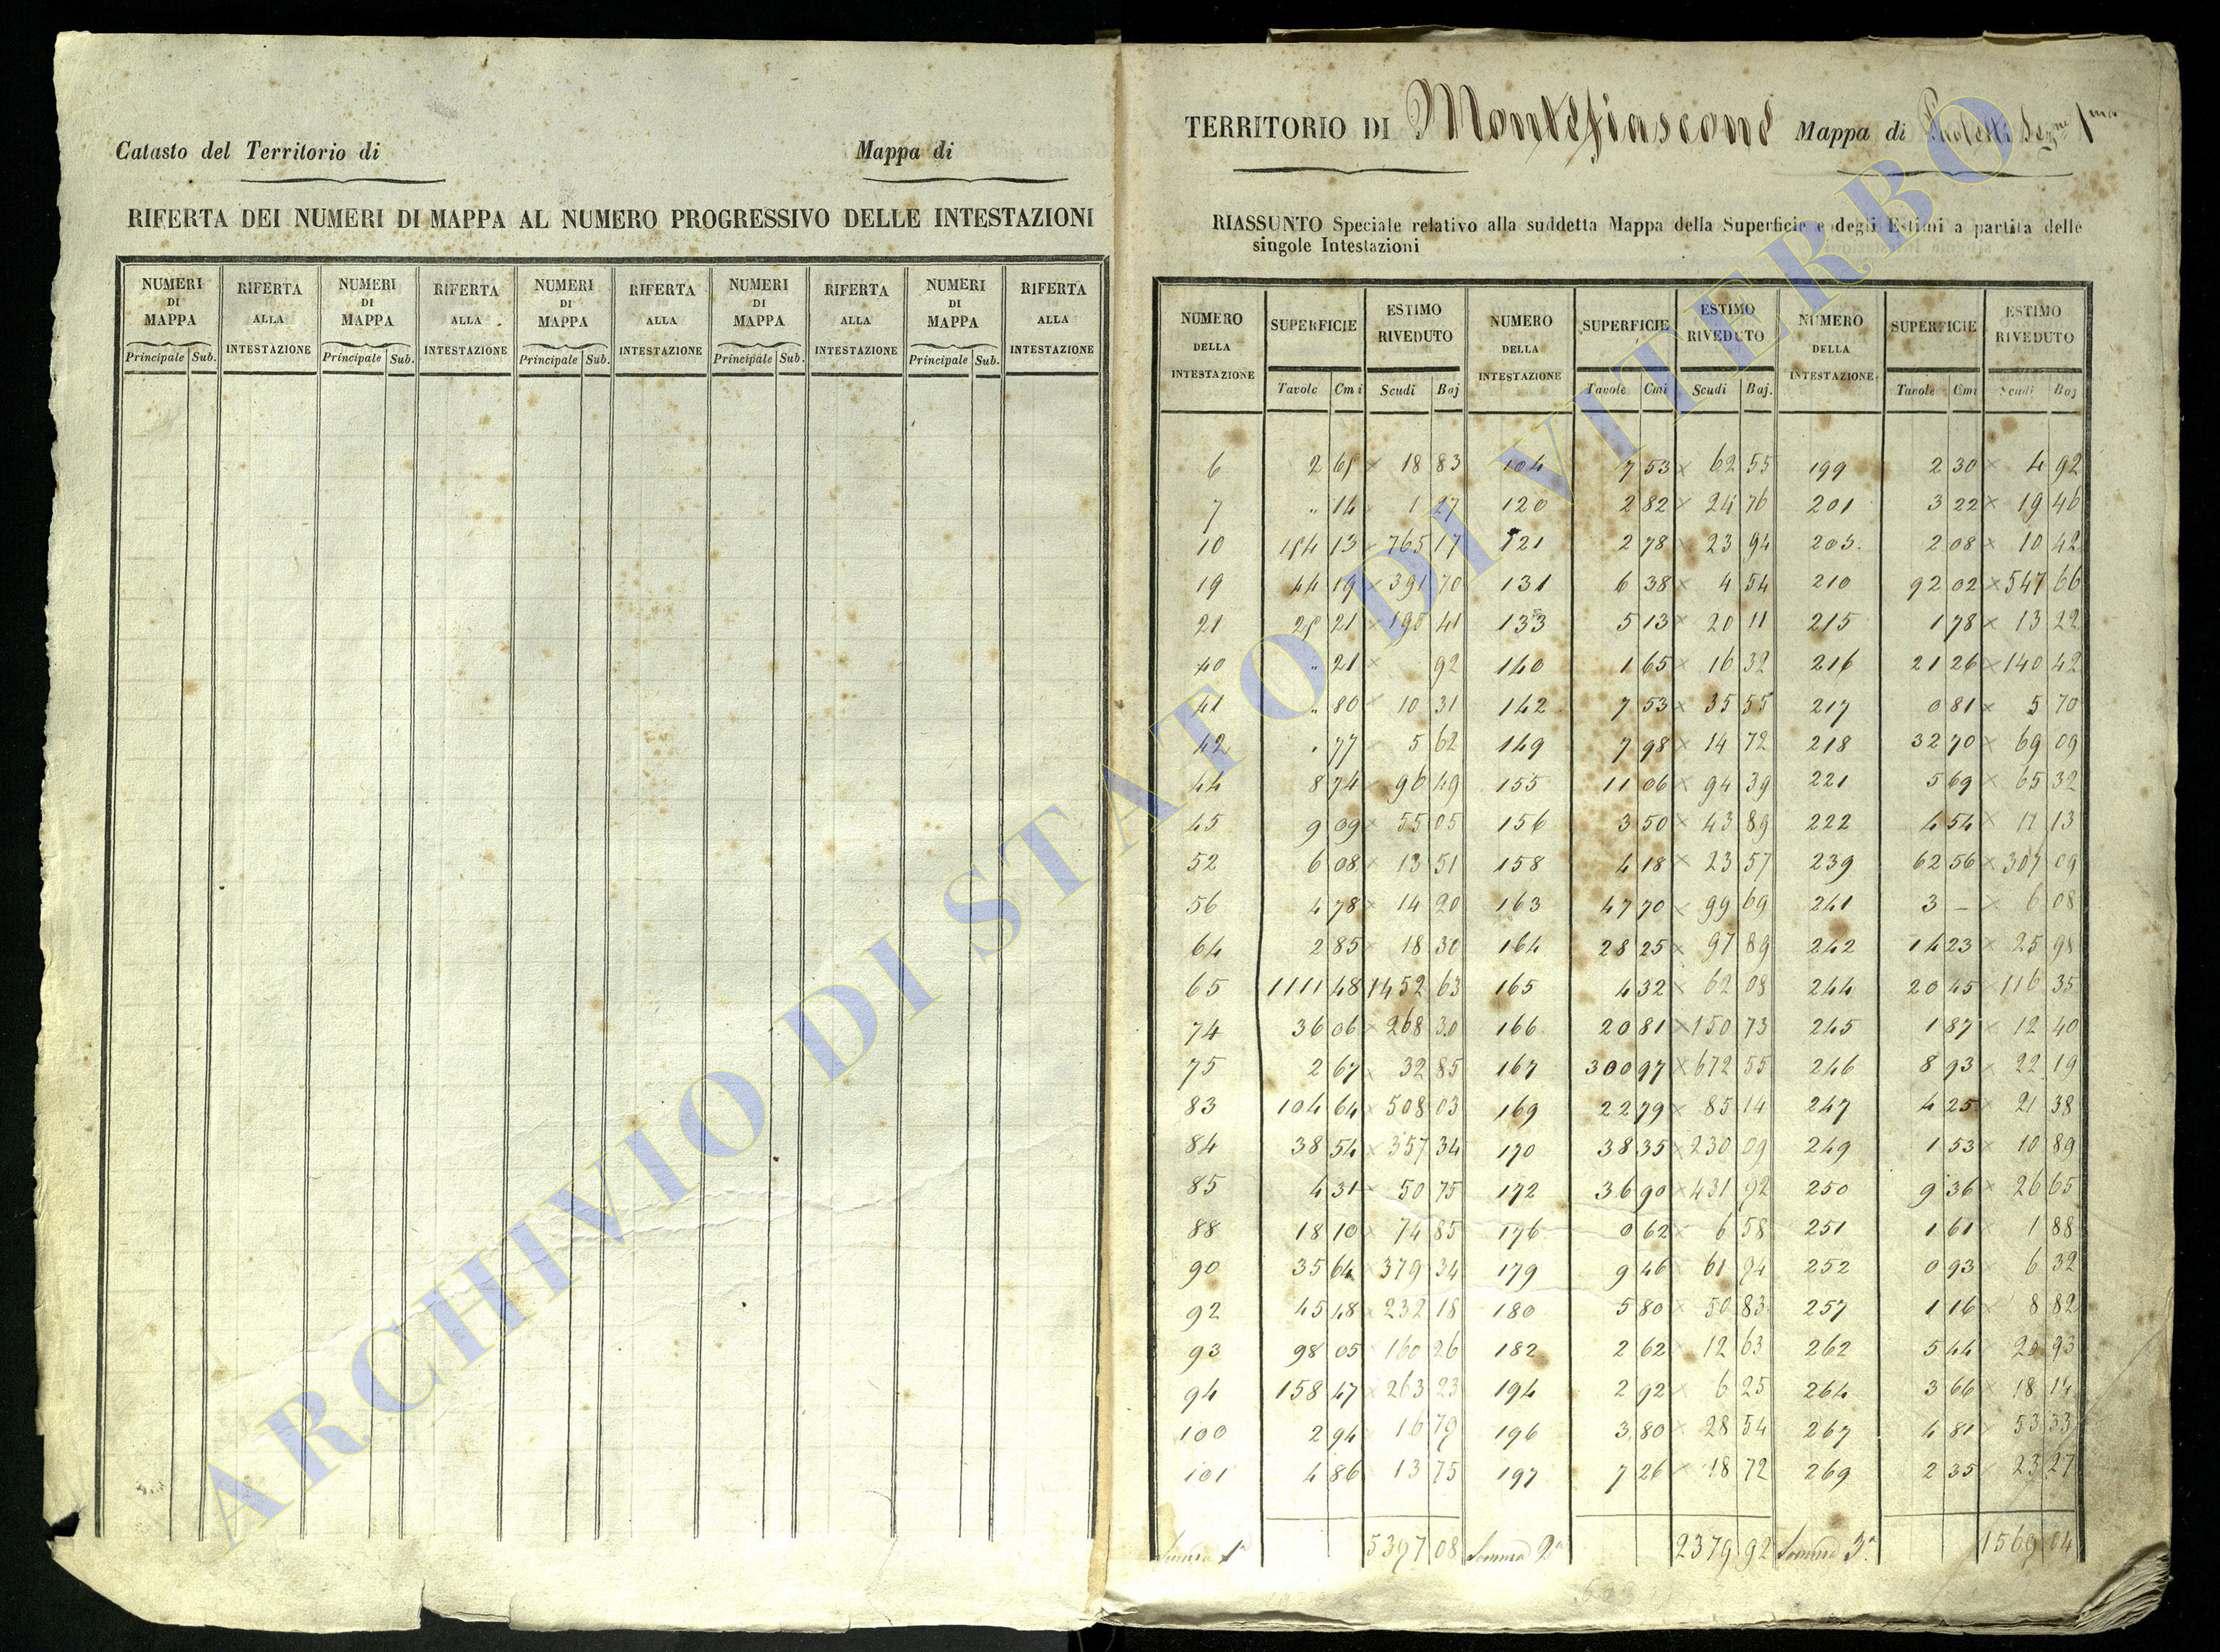 Catasto del Territorio di Mappa di
RIFERTA DEI NUMERI DI MAPPA AL NUMERO PROGRESSIVO DELLE INTESTAZIONI
NUMERI RIFERTA NUMERI RIFERTA NUMERI RIFERTA NUMERI RIFERTA NUMERI RIFERTA
DI ALLA DI ALLA DI ALLA DI ALLA DI ALLA
MAPPA INTESTAZIONE MAPPA INTESTAZIONE MAPPA INTESTAZIONE MAPPA INTESTAZIONE MAPPA INTESTAZIONE
Principale Sub. Principale Sub. Principale Sub. Principale Sub. Principale Sub.
TERRITORIO DI Montefiascone Mappa di Paoletti Sezne 1ma
RIASSUNTO Speciale relativo alla suddetta Mappa della Superficie e degli Estimi a partita delle
singole Intestazioni
NUMERO SUPERFICIE ESTIMO NUMERO SUPERFICIE ESTIMO NUMERO SUPERFICIE ESTIMO
DELLA RIVEDUTO DELLA RIVEDUTO DELLA RIVEDUTO
INTESTAZIONE INTESTAZIONE INTESTAZIONE
Tavole Cmi Scudi Baj Tavole Cmi Scudi Baj. Tavole Cmi Scudi Baj
6 2 68 × 18 83 104 7 53 × 62 55 199 2 30 × 4 92
7 " 14 1 27 120 2 82 × 24 76 201 3 22 × 19 46
10 184 13 × 765 17 121 2 78 × 23 94 203. 2 08 × 10 42
19 44 19 × 391 70 131 6 38 × 4 54 210 92 02 × 547 66
21 28 21 × 195 41 133 5 13 × 20 11 215 1 78 × 13 22
40 " 21 × 92 140 1 65 × 16 32 216 21 26 × 140 42
41 " 80 × 10 31 142 7 53 × 35 55 217 0 81 × 5 70
42 " 77 × 5 62 149 7 98 × 14 72 218 32 70 × 69 09
44 8 74 × 96 49 155 11 06 × 94 39 221 5 69 × 65 32
45 9 09 × 55 05 156 3 50 × 43 89 222 4 54 × 17 13
52 6 08 × 13 51 158 4 18 × 23 57 239 62 56 × 307 09
56 4 78 × 14 20 163 47 70 × 99 69 241 3 – × 6 08
64 2 85 × 18 30 164 28 25 × 97 89 242 14 23 × 25 98
65 1111 48 1452 63 165 4 32 × 62 08 244 20 45 × 116 35
74 36 06 × 268 30 166 20 81 × 150 73 245 1 87 × 12 40
75 2 67 × 32 85 167 300 97 × 672 55 246 8 93 × 22 19
83 104 64 × 508 03 169 22 79 × 85 14 247 4 25 × 21 38
84 38 54 × 357 34 170 38 35 × 230 09 249 1 53 × 10 89
85 4 31 × 50 75 172 36 90 × 431 92 250 9 36 × 26 65
88 18 10 × 74 85 176 0 62 × 6 58 251 1 61 × 1 88
90 35 64 × 379 34 179 9 46 × 61 94 252 0 93 × 6 32
92 45 48 × 232 18 180 5 80 × 50 83 257 1 16 × 8 82
93 98 05 × 160 26 182 2 62 × 12 63 262 5 44 × 20 93
94 158 47 × 263 23 194 2 92 × 6 25 264 3 66 × 18 14
100 2 94 × 16 79 196 3 80 × 28 54 267 4 81 × 53 33
101 4 86 13 75 197 7 26 × 18 72 269 2 35 × 23 27
Somma 1a 5397 08 Somma 2a 2379 92 Somma 3a 1569 04
ARCHIVIO DI STATO DI VITERBO